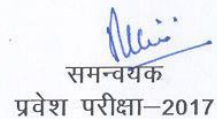 समन्वयक
प्रवेश परीक्षा–2017